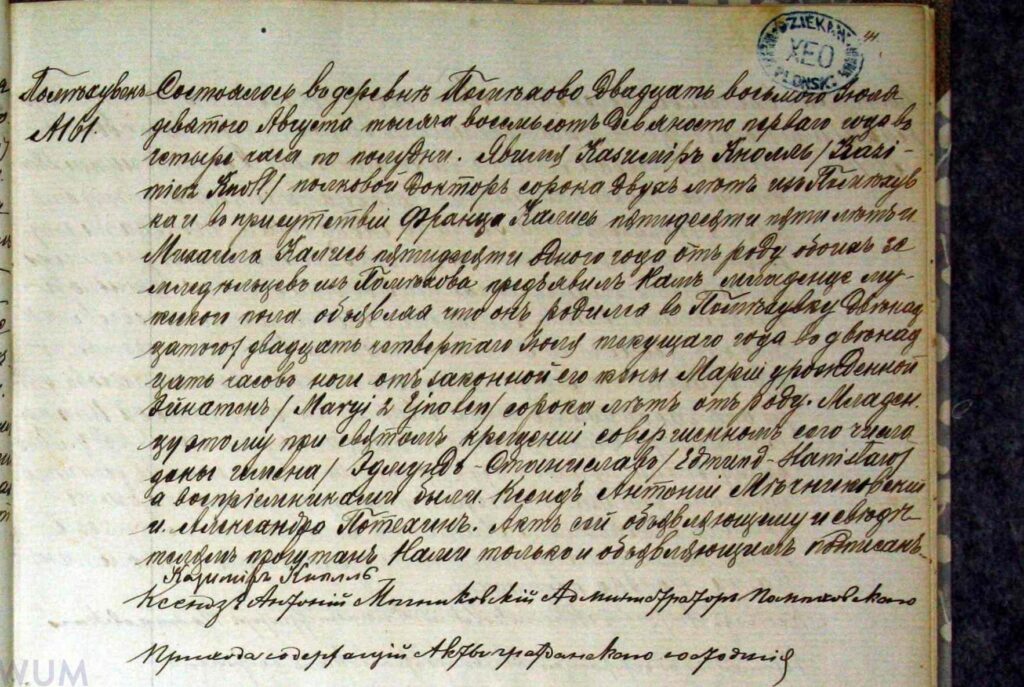 Помѣховек Состоялось въ деревнѣ Помѣхово двадцать восьмого Іюля
№161. девятого Августа тысяча восемьсотъ девяносто перваго года въ
четыре часа по полудни. Явился Казиміръ Кноллъ /Kazi-
mierz Knoll/ полковой Докторъ сорока двухъ лѣтъ изъ Помѣхув
ка и въ присутствіи Франца Калисъ пятидесяти пяти лѣтъ и
Михаила Калисъ пятидесяти одного года отъ роду обоихъ зе
мледѣльцевъ изъ Помѣхова предъявилъ Намъ младенца му-
жского пола объявляя что онъ родился въ Помѣхувку двѣнад
цатого/ двадцать четвертаго Іюля текущаго года въ двѣнад
цать часовъ ночи отъ законной его жены Маріи урожденной
Эйнатенъ /Maryi z Ejnaten/ сорока лѣтъ отъ роду. Младен
цу этому при святомъ крещеніи совершенномъ сего числа
даны имена/ Эдмундъ-Станиславъ/ Edmund-Stanisław/
а воспріемниками были Ксендз Антоній Мѣчниковскій
и Александра Потехинъ. Актъ сей объявляющему и свидѣ
телямъ прочитан Нами только и объявляющимъ подписанъ.
Казиміръ Кноллъ
Ксендзъ Антоній Мечниковскій Администраторъ Помѣховскаго
Прихода содержащій Акты гражданскаго состоянія
DZIEKAN
XEO
PŁOŃSK
WUM